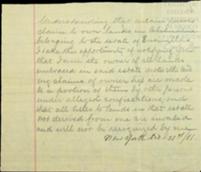 Understanding that certain parties
claim to own lands in
belonging to the estate of
I take this opportunity of notifying
that I am the owner of all lands
embraced in said estate
any claims of ownership are made
to a portion of them by other persons
under alleged and
that all titles to lands in that estate
not derived from me are invalid
and will not be recognized by me
New York